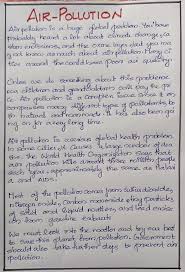 AIR-POLLUTION
Air pollution is a huge global problem. You have
probably heard a lot about climate change, ca
emissions, and the ozone layer, but you may
not know as much about air pollution. Many ci
ties around the world have poor air quality
Unless we do something about this problem
our children and grandchildren will pay the pri
Air pollution is a complex issue since it
comprises many different types of pollutants, bo
th natural and manmade. It has also been goi
ng on for a very long time.
Air pollution is a serious global health problem
In some cities it causes a large number of dea
ths. The World Health Organization says that
air pollution kills people
each year, approximately the same as
and
Most of the pollution comes from sulfur dioxide,
nitrogen oxide, carbon monoxide, tiny particles
of solid and liquid matter, and lead
from gasoline exhaust.
We must look into the matter and try our best
to save this planet from pollution. Government
should also take further steps to prevent air
pollution.